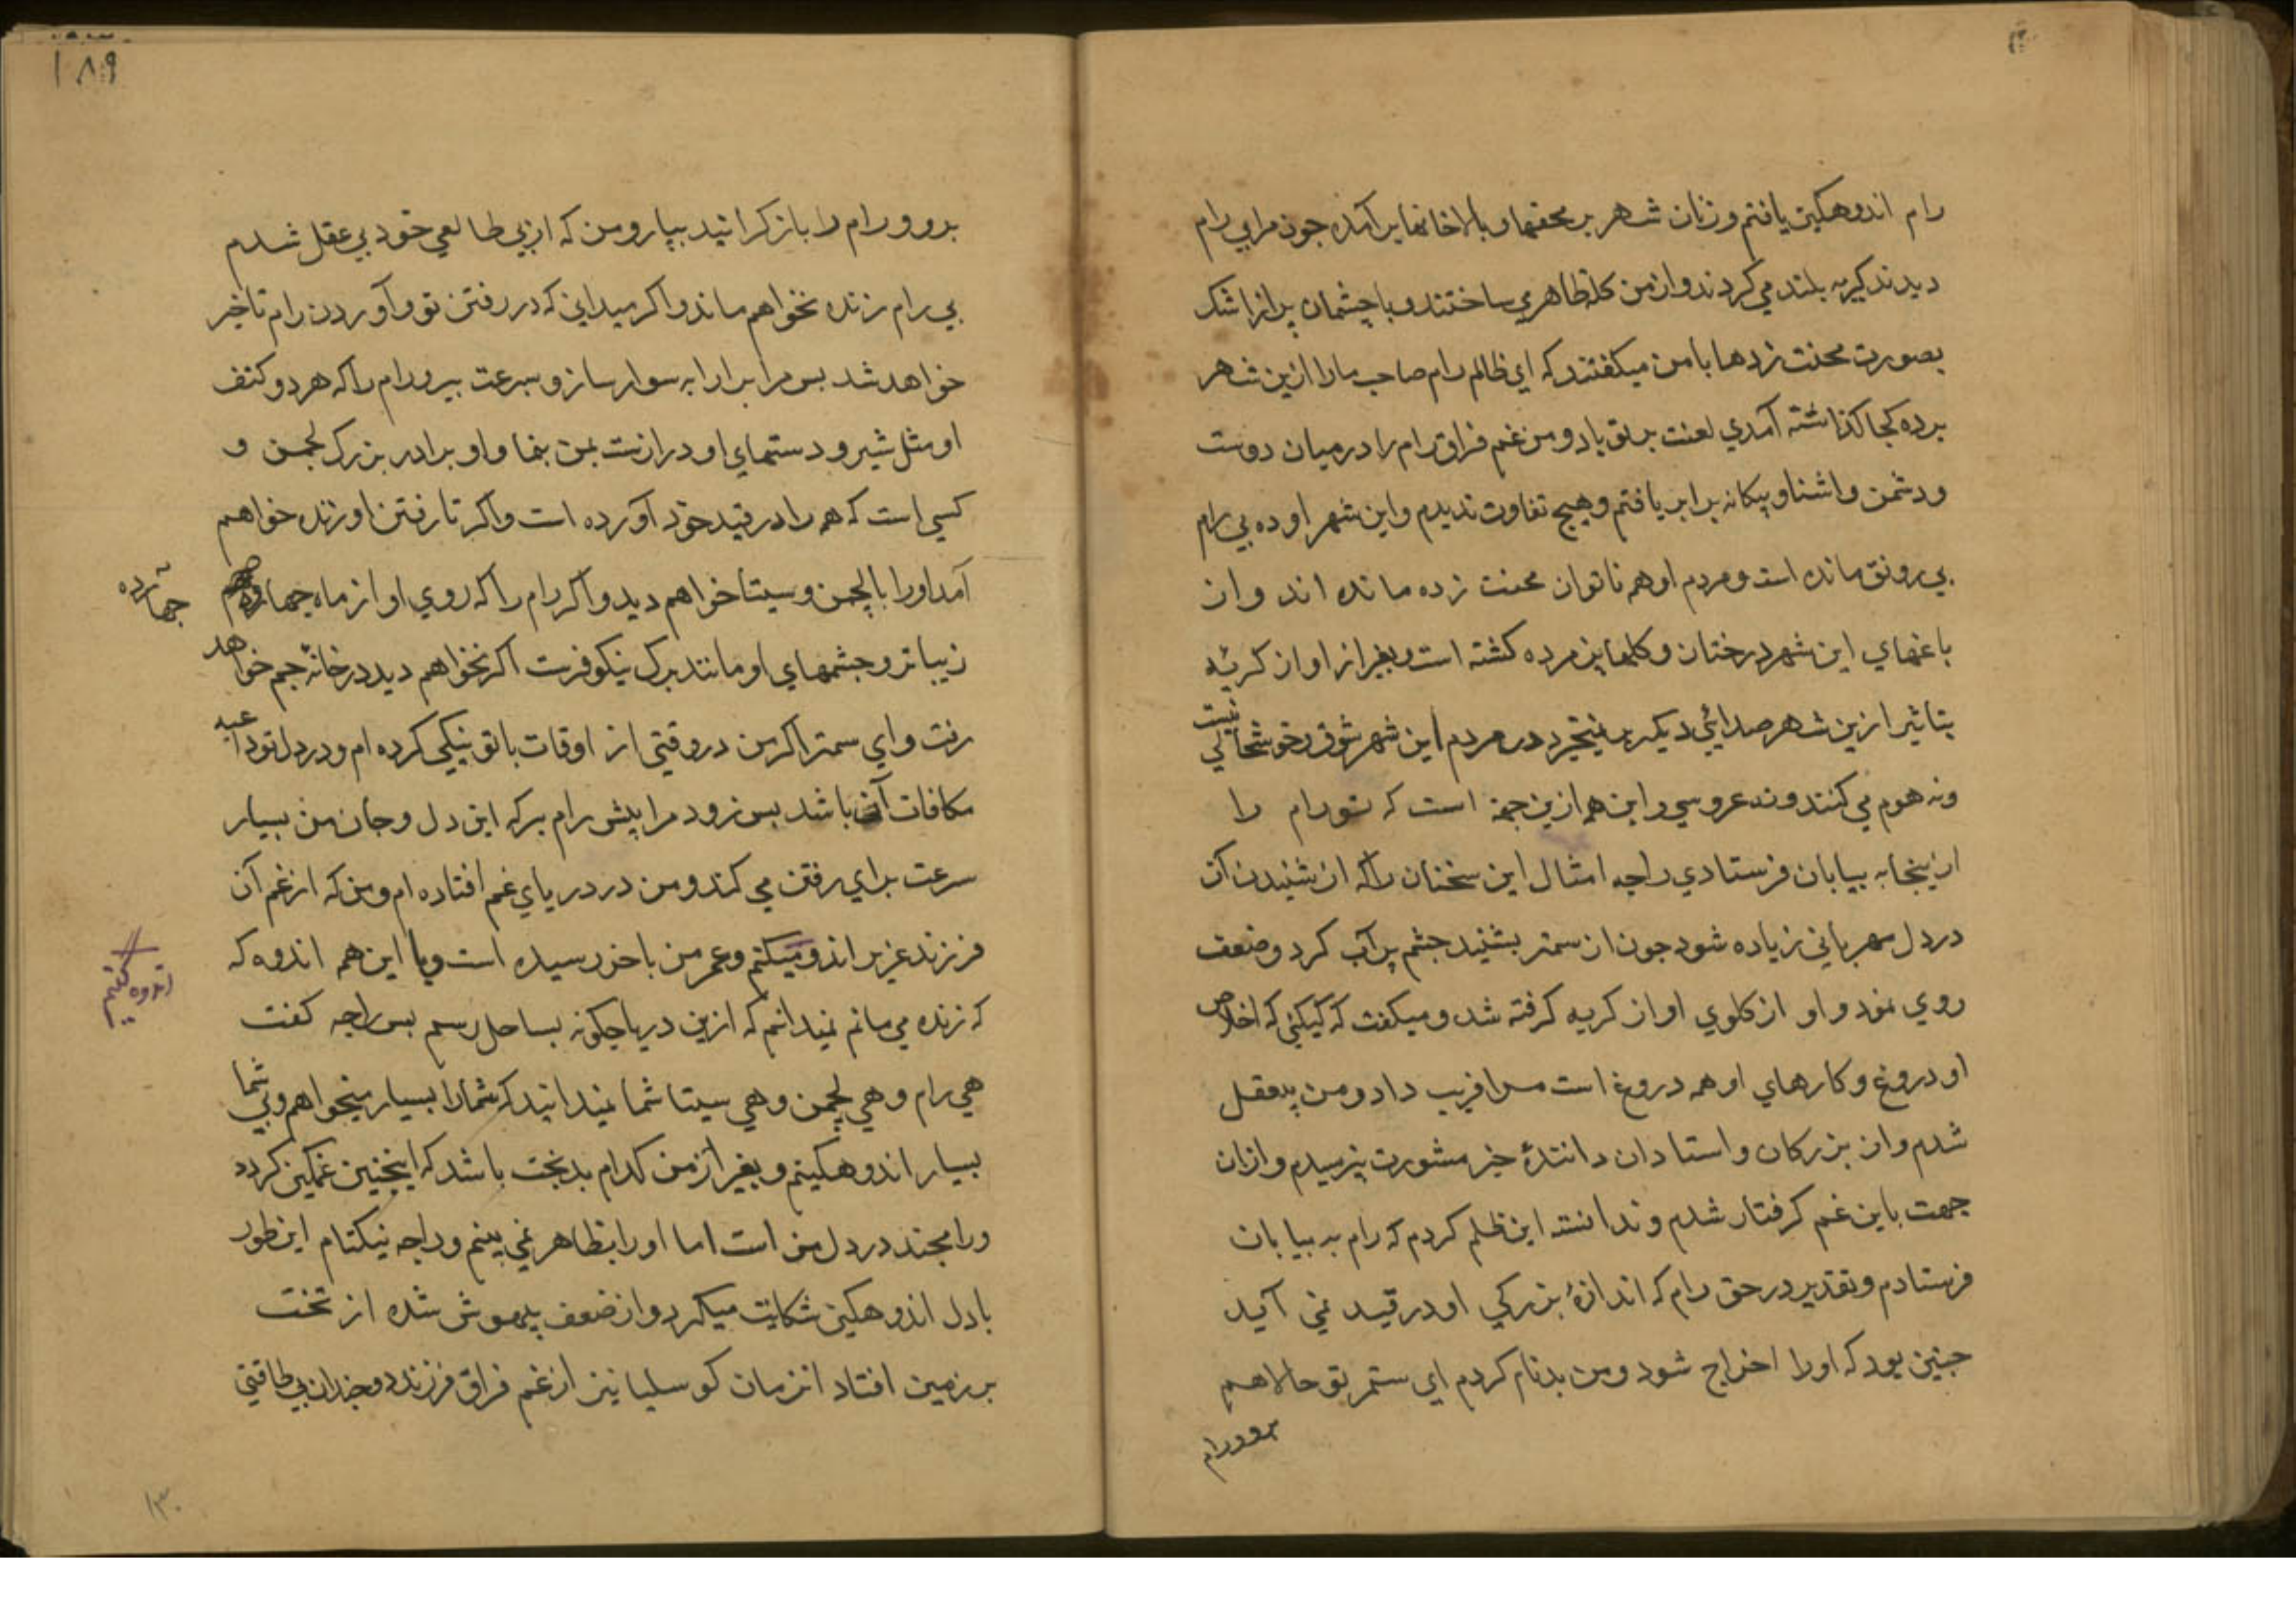 رام اندوهكين يافتم و زنان شهر بر محفها و بالاخانها بر آمده جون مرا بي رام
ديدند كيريه بلند مي كردند و از من كله ظاهري ساختند و با چشمان پر از اشك
بصورت محنت زدها با من ميكفتند كه اي ظالم رام صاحب ما را ازين شهر
برده كجا كذاشته آمدي لعنت بر تو باد و من غم فراق رام را در ميان دوست
و دشمن و اشنا و بيكانه برابر يافتم و هيچ تفاوت نديدم و اين شهر اوده بي رام
بي رونق مانده است و مردم او همه ناتوان محنت زده مانده اند و از
باغهاي اين شهر درختان و كلهاين مرده كشته است و بغير از اواز كريه
بتاثير ازين شهر صدائي ديكر بر نميخيزد در مردم اين شهر شوق و خوشحالي نيست
و نه هوم مي كنند و نه عروسي و اين همه ازين جهة است كه تو رام را
ازينجا به بيابان فرستادي راجه امثال اين سخنان را كه از شنيدن آن
در دل مهرباني زياده شود جون از سمتر بشنيد جشم پر آب كرد و ضعف
روي نمود و او از كلوي او از كريه كرفته شد و ميكفت كه كيكئي كه اخلاص
او دروغ و كارهاي او همه دروغ است مرا فريب داد و من بيعقل
شدم و از بزركان و استادان دانندهٔ خير مشورت نپرسيدم و ازان
جهت باين غم كرفتار شدم و ندانسته اين ظلم كردم كه رام به بيابان
فرستادم و تقدير در حق رام كه اندازهٔ بزركي او در قيد نمي آيد
جنين بود كه او را اخراج شود و من بدنام كردم اي ستمر تو حالا هم
برو و رام
۱۸۹
برو و رام را باز كردانيد بيار و من كه از بي طالعي خود بي عقل شدم
بي رام زنده نخواهم ماند و اكر ميداني كه در رفتن تو و آوردن رام تاخير
خواهد شد بس مرا بر ارابه سوار ساز و بسرعت ببر و رام را كه هر دو كتف
او مثل شير و دستهاي او دراز ست بمن بنما و او برادر بزرك لچمن و
كسي است كه همه را در قيد خود آورده است و اكر تا رفتن او زنده خواهم
آمد او را با لچمن و سيتا خواهم ديد و اكر رام را كه روي او از ماه چهارده
جهارده
زيباتر و جشمهاي او مانند برك نيكوفرست اكر نخواهم ديد در خانهٔ جم خواهد
رفت و اي سمتر اكر من در وقتي از اوقات با تو نيكي كرده ام و در دل تو داعيه
مكافات آن باشد بس زود مرا پيش رام بر كه اين دل و جان من بسيار
سرعت براي رفتن مي كند و من در درياي غم افتاده ام و من كه از غم آن
فرزند عزيز اندو ميكنم و عمر من باخر رسيده است و با اين همه اندوه كه
اندوه كنم
كه زنده مي مانم نميدانم كه ازين دريا چكونه بساحل رسم بس راجه كفت
هي رام و هي لچمن و هي سيتا شما نميدانيد كه شما را بسيار ميخواهم و بي شما
بسيار اندوهكينم و بغير از من كدام بدبخت باشد كه اينچنين غمكين كردد
و رامچند در دل من است اما او را بظاهر نمي بينم و راجه نيكنام اين طور
با دل اندوهكين شكايت ميكرد و از ضعف بيهوش شده از تخت
بر زمين افتاد ان زمان كوسليا نيز از غم فراق فرزند دو چندان بي طاقتي
۱۳۰